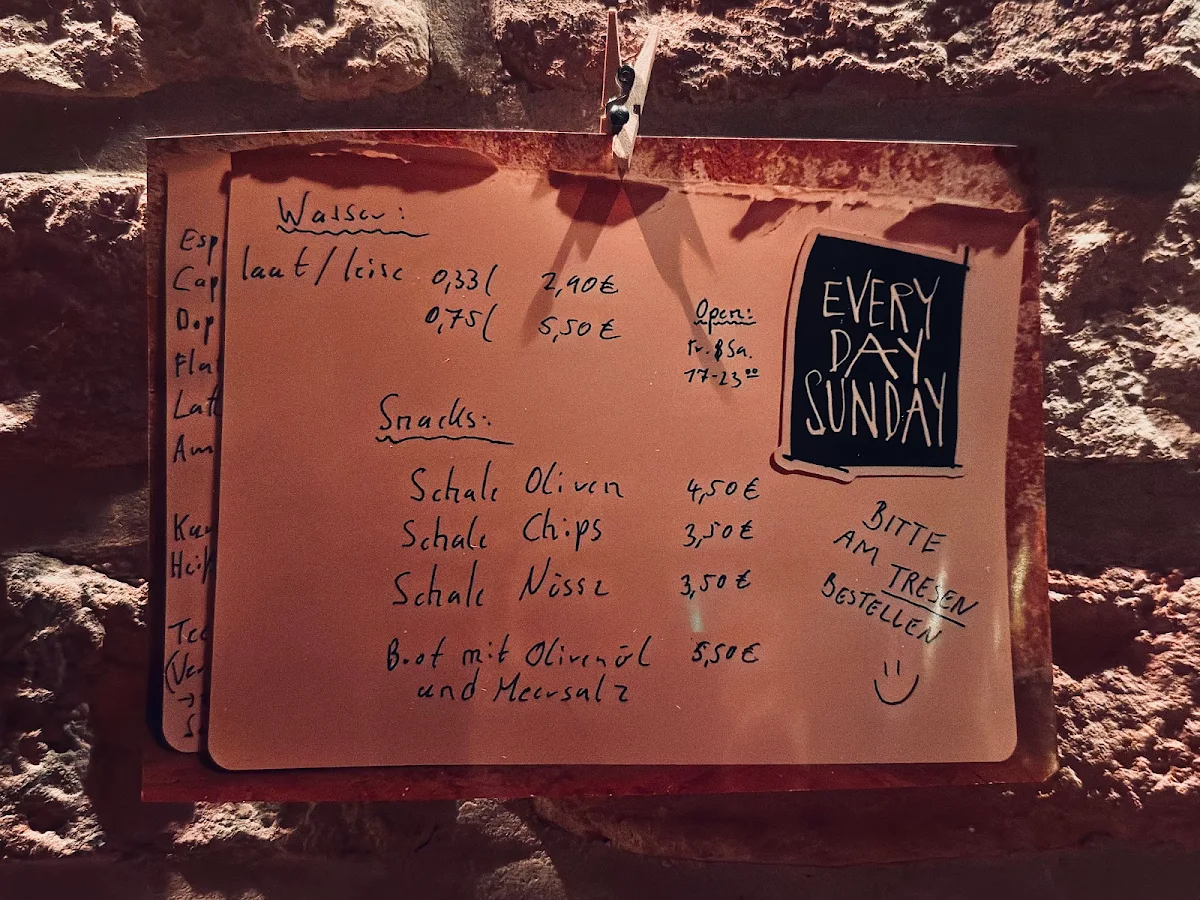 Wasser:
laut/leise 0,33l 2,90€
0,75l 5,50€
Open:
Fr. & Sa.
17-23⁰⁰
EVERY
DAY
SUNDAY
Snacks:
Schale Oliven 4,50€
Schale Chips 3,50€
Schale Nüsse 3,50€
Brot mit Olivenöl 5,50€
und Meersalz
BITTE
AM TRESEN
BESTELLEN
Esp
Cap
Dop
Flat
Lat
Am